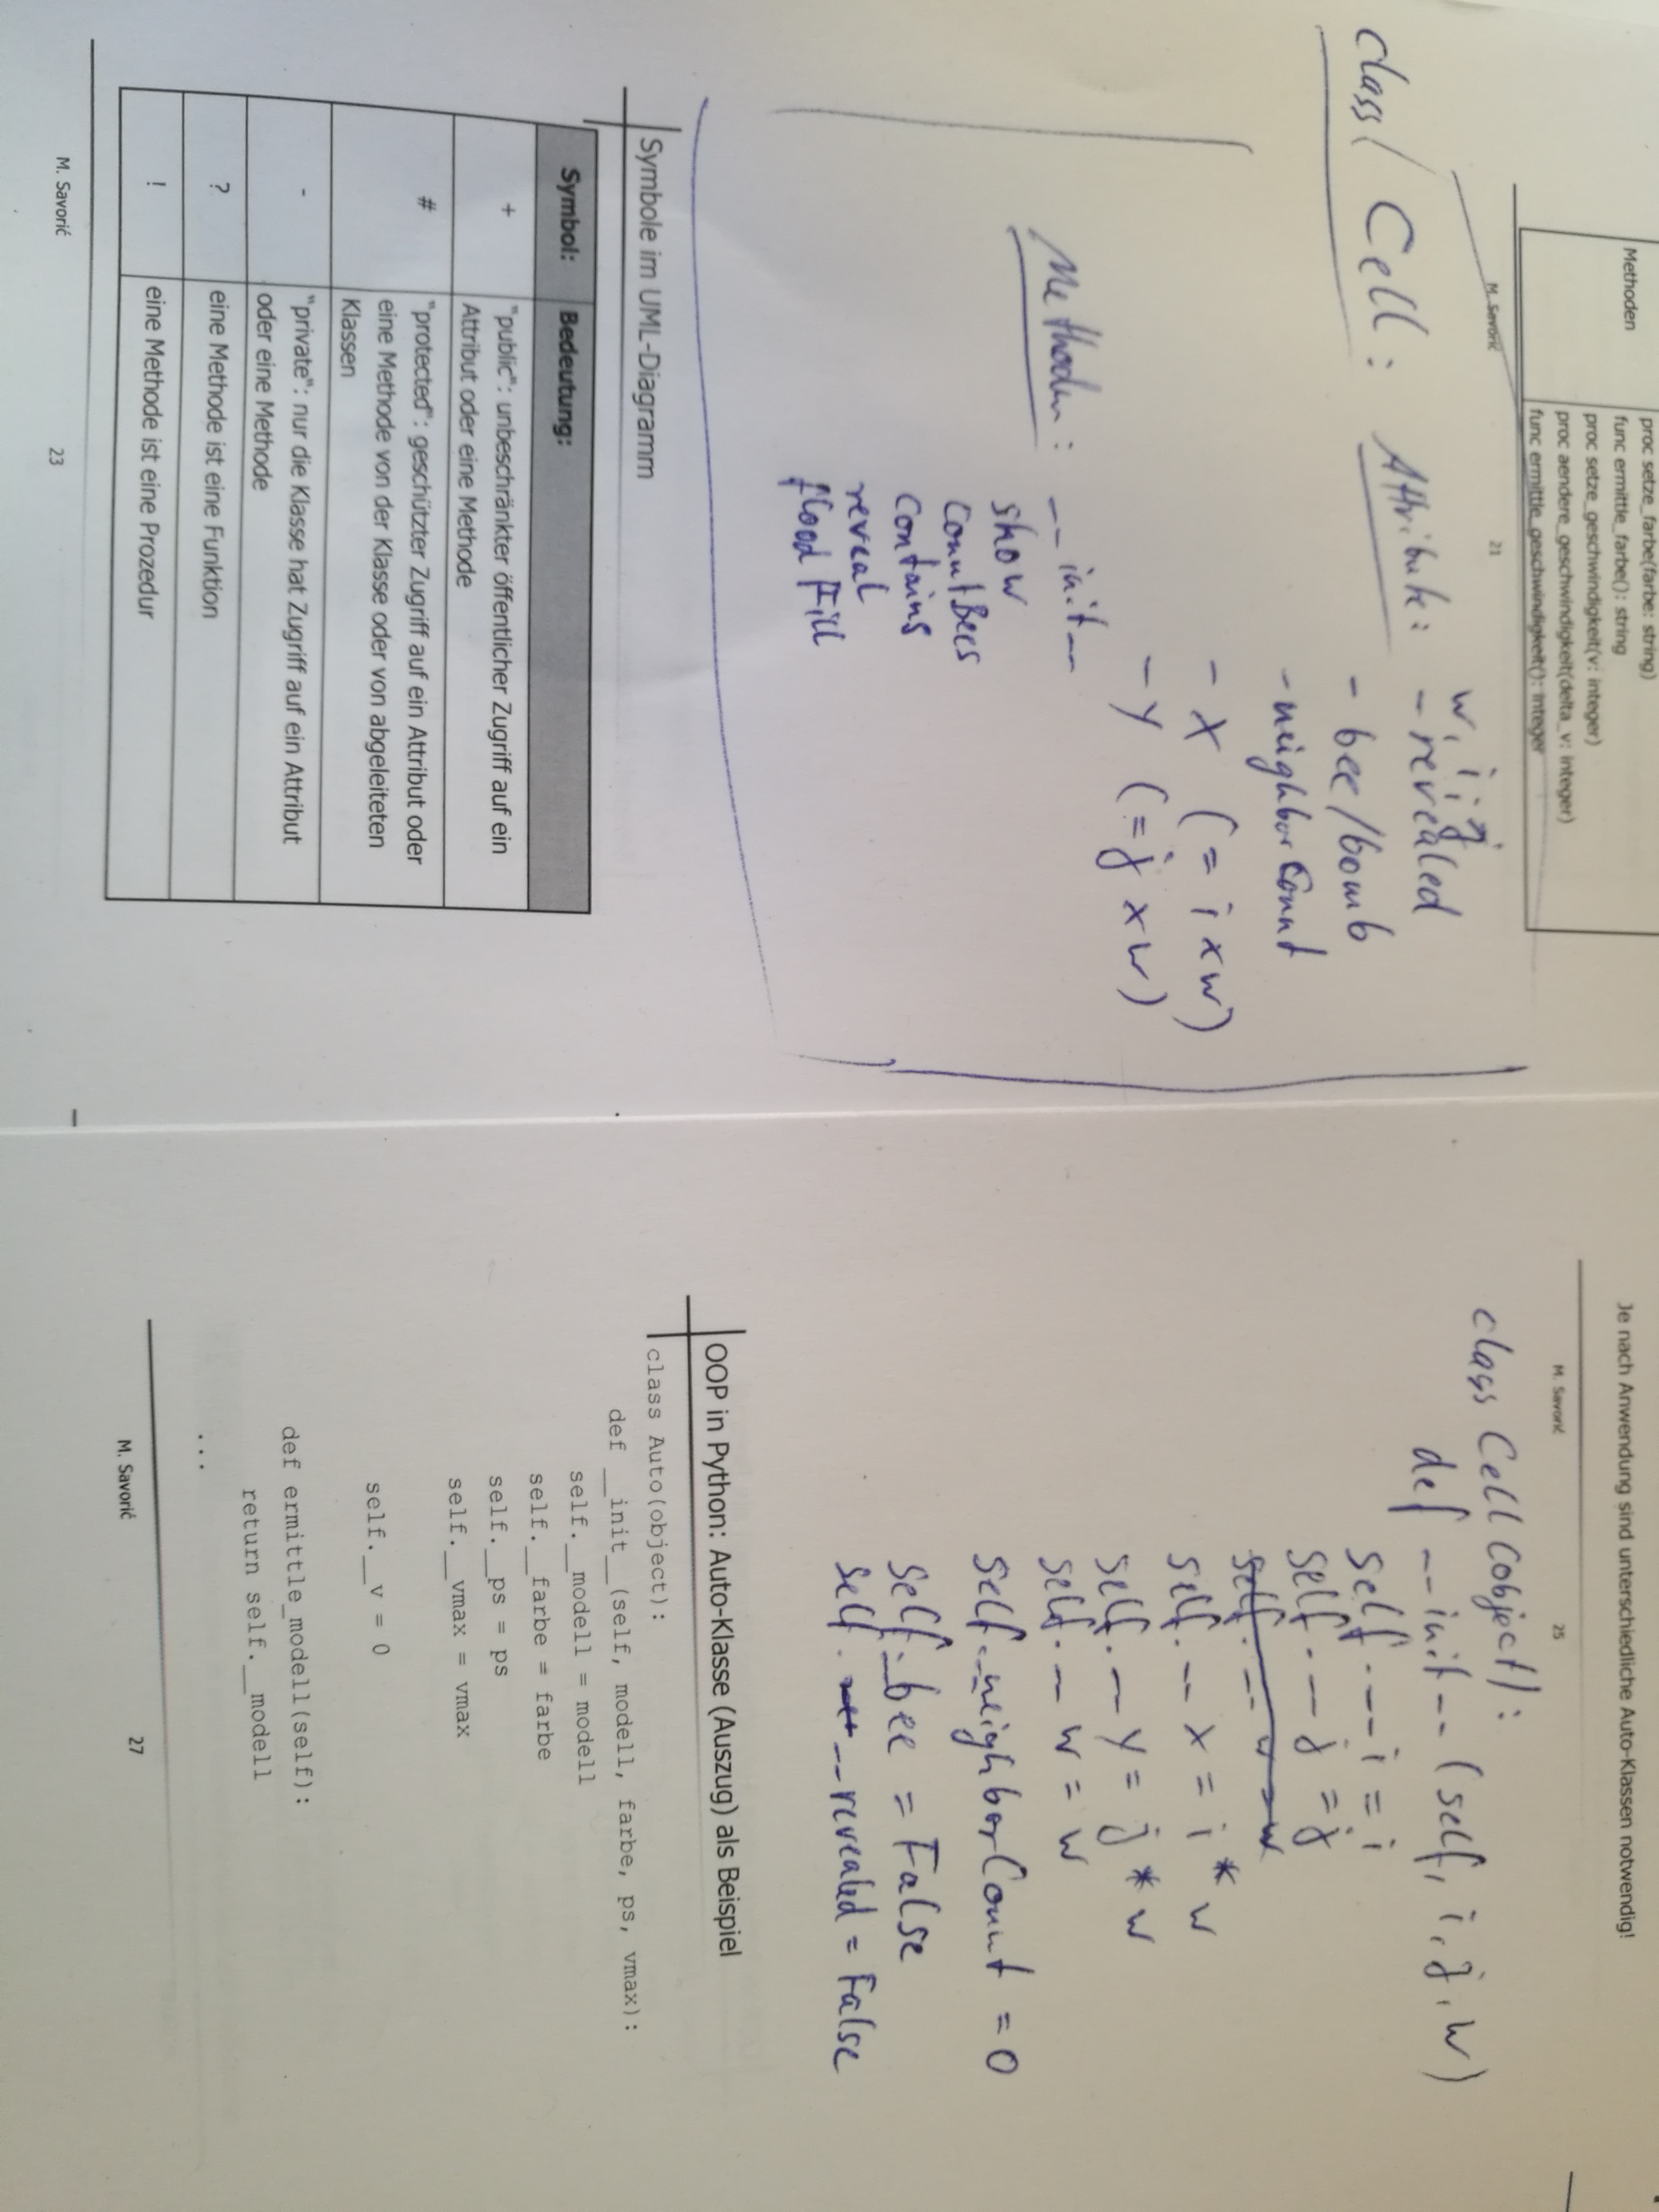 Methoden
proc setze_farbe(farbe: string)
func ermittle_farbe(): string
proc setze_geschwindigkeit(v: integer)
proc aendere_geschwindigkeit(delta_v: integer)
func ermittle_geschwindigkeit(): integer
M. Savorić 21
class Cell: Attribute: w, i, j
- revealed
- bee/bomb
- neighborCount
- x (= i x w)
- y (= j x w)
Methoden: __init__
show
countBees
contains
reveal
floodFill
Symbole im UML-Diagramm
Symbol: Bedeutung:
+ "public": unbeschränkter öffentlicher Zugriff auf ein
Attribut oder eine Methode
# "protected": geschützter Zugriff auf ein Attribut oder
eine Methode von der Klasse oder von abgeleiteten
Klassen
- "private": nur die Klasse hat Zugriff auf ein Attribut
oder eine Methode
? eine Methode ist eine Funktion
! eine Methode ist eine Prozedur
M. Savorić 23
Je nach Anwendung sind unterschiedliche Auto-Klassen notwendig!
M. Savorić 25
class Cell(object):
def __init__(self, i, j, w)
self.__i = i
self.__j = j
self.__w = w
self.__x = i * w
self.__y = j * w
self.__w = w
self.__neighborCount = 0
self.__bee = False
self.__revealed = False
OOP in Python: Auto-Klasse (Auszug) als Beispiel
class Auto(object):
def __init__(self, modell, farbe, ps, vmax):
self.__modell = modell
self.__farbe = farbe
self.__ps = ps
self.__vmax = vmax
self.__v = 0
def ermittle_modell(self):
return self.__modell
...
M. Savorić 27